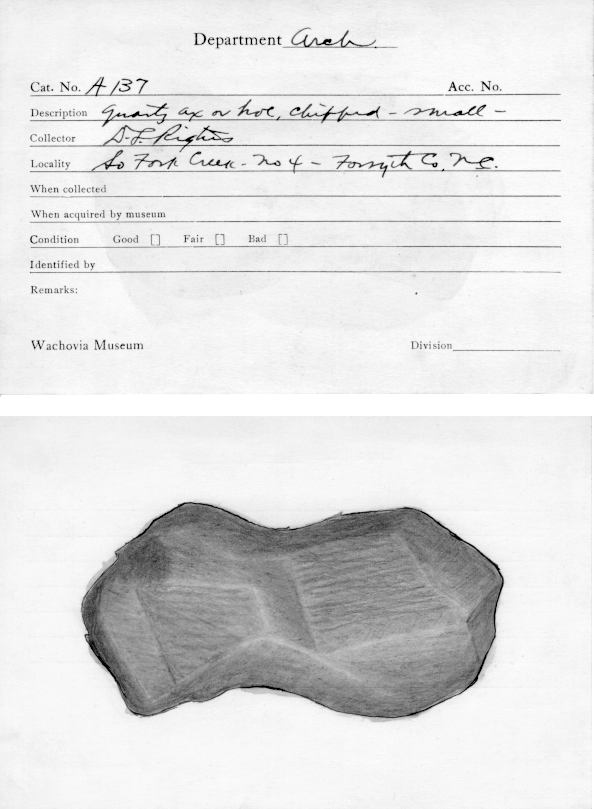 Department Arch.
Cat. No. A 137 Acc. No.
Description quartz ax or hoe, chipped - small -
Collector D. L. Rights
Locality So Fork Creek - No 4 - Forsyth Co, N.C.
When collected
When acquired by museum
Condition Good [] Fair [] Bad []
Identified by
Remarks:
Wachovia Museum Division